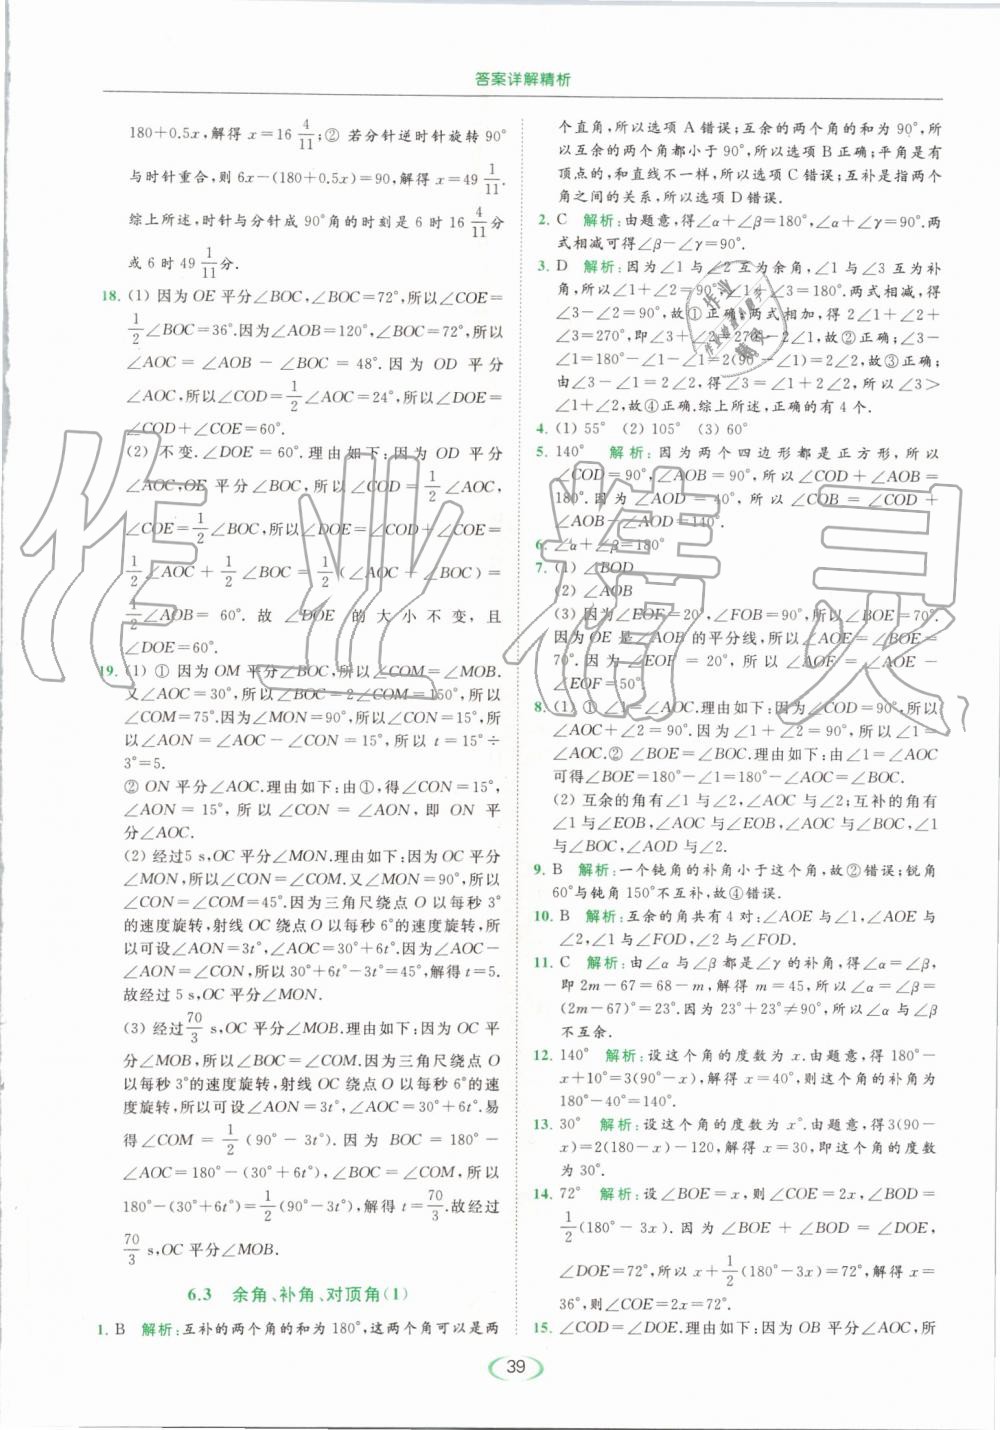 答案详解精析
180+0.5x,解得 x=16 4/11;② 若分针逆时针旋转 90°
与时针重合,则 6x-(180+0.5x)=90,解得 x=49 1/11.
综上所述,时针与分针成 90°角的时刻是 6 时 16 4/11 分
或 6 时 49 1/11 分.
18. (1) 因为 OE 平分∠BOC,∠BOC=72°,所以∠COE=
1/2∠BOC=36°.因为∠AOB=120°,∠BOC=72°,所以
∠AOC=∠AOB-∠BOC=48°.因为 OD 平分
∠AOC,所以∠COD=1/2∠AOC=24°,所以∠DOE=
∠COD+∠COE=60°.
(2) 不变.∠DOE=60°.理由如下:因为 OD 平分
∠AOC,OE 平分∠BOC,所以∠COD=1/2∠AOC,
∠COE=1/2∠BOC,所以∠DOE=∠COD+∠COE=
1/2∠AOC+1/2∠BOC=1/2(∠AOC+∠BOC)=
1/2∠AOB=60°.故∠DOE 的大小不变,且
∠DOE=60°.
19. (1) ① 因为 OM 平分∠BOC,所以∠COM=∠MOB.
又∠AOC=30°,所以∠BOC=2∠COM=150°,所以
∠COM=75°.因为∠MON=90°,所以∠CON=15°,所
以∠AON=∠AOC-∠CON=15°,所以 t=15°÷
3°=5.
② ON 平分∠AOC.理由如下:由①,得∠CON=15°,
∠AON=15°,所以∠CON=∠AON,即 ON 平
分∠AOC.
(2) 经过5 s,OC 平分∠MON.理由如下:因为 OC 平分
∠MON,所以∠CON=∠COM.又∠MON=90°,所以
∠CON=∠COM=45°.因为三角尺绕点 O 以每秒 3°
的速度旋转,射线 OC 绕点 O 以每秒 6°的速度旋转,所
以可设∠AON=3t°,∠AOC=30°+6t°.因为∠AOC-
∠AON=∠CON,所以 30°+6t°-3t°=45°,解得 t=5.
故经过 5 s,OC 平分∠MON.
(3) 经过70/3 s,OC 平分∠MOB.理由如下:因为 OC 平
分∠MOB,所以∠BOC=∠COM.因为三角尺绕点 O
以每秒 3°的速度旋转,射线 OC 绕点 O 以每秒 6°的速
度旋转,所以可设∠AON=3t°,∠AOC=30°+6t°.易
得∠COM=1/2(90°-3t°).因为 BOC=180°-
∠AOC=180°-(30°+6t°),∠BOC=∠COM,所以
180°-(30°+6t°)=1/2(90°-3t°),解得 t=70/3.故经过
70/3 s,OC 平分∠MOB.
6.3 余角、补角、对顶角(1)
1. B 解析:互补的两个角的和为 180°,这两个角可以是两
个直角,所以选项 A 错误;互余的两个角的和为 90°,所
以互余的两个角都小于 90°,所以选项 B 正确;平角是有
顶点的,和直线不一样,所以选项 C 错误;互补是指两个
角之间的关系,所以选项 D 错误.
2. C 解析:由题意,得∠α+∠β=180°,∠α+∠γ=90°.两
式相减可得∠β-∠γ=90°.
3. D 解析:因为∠1 与∠2 互为余角,∠1 与∠3 互为补
角,所以∠1+∠2=90°,∠1+∠3=180°.两式相减,得
∠3-∠2=90°,故①正确;两式相加,得 2∠1+∠2+
∠3=270°,即∠3+∠2=270°-2∠1,故②正确;∠3-
∠1=180°-∠1-∠1=2(90°-∠1)=2∠2,故③正确;
由∠3-∠1=2∠2,得∠3=∠1+2∠2,所以∠3>
∠1+∠2,故④正确.综上所述,正确的有 4 个.
4. (1) 55° (2) 105° (3) 60°
5. 140° 解析:因为两个四边形都是正方形,所以
∠COD=90°,∠AOB=90°,所以∠COD+∠AOB=
180°.因为∠AOD=40°,所以∠COB=∠COD+
∠AOB-∠AOD=140°.
6. ∠α+∠β=180°
7. (1) ∠BOD
(2) ∠AOE
(3) 因为∠EOF=20°,∠FOB=90°,所以∠BOE=70°.
因为 OE 是∠AOB 的平分线,所以∠AOE=∠BOE=
70°.因为∠EOF=20°,所以∠AOF=∠AOE-
∠EOF=50°.
8. (1) ① ∠1=∠AOC.理由如下:因为∠COD=90°,所以
∠AOC+∠2=90°.因为∠1+∠2=90°,所以∠1=
∠AOC.② ∠BOE=∠BOC.理由如下:由∠1=∠AOC
可得∠BOE=180°-∠1=180°-∠AOC=∠BOC.
(2) 互余的角有∠1 与∠2,∠AOC 与∠2;互补的角有
∠1 与∠EOB,∠AOC 与∠EOB,∠AOC 与∠BOC,∠1
与∠BOC,∠AOD 与∠2.
9. B 解析:一个钝角的补角小于这个角,故②错误;锐角
60°与钝角 150°不互补,故④错误.
10. B 解析:互余的角共有 4 对:∠AOE 与∠1,∠AOE 与
∠2,∠1 与∠FOD,∠2 与∠FOD.
11. C 解析:由∠α 与∠β 都是∠γ 的补角,得∠α=∠β,
即 2m-67=68-m,解得 m=45,所以∠α=∠β=
(2m-67)°=23°.因为 23°+23°≠90°,所以∠α 与∠β
不互余.
12. 140° 解析:设这个角的度数为 x.由题意,得 180°-
x+10°=3(90°-x),解得 x=40°,则这个角的补角为
180°-40°=140°.
13. 30° 解析:设这个角的度数为 x°.由题意,得3(90-
x)=2(180-x)-120,解得 x=30,即这个角的度数
为 30°.
14. 72° 解析:设∠BOE=x,则∠COE=2x,∠BOD=
1/2(180°-3x).因为∠BOE+∠BOD=∠DOE,
∠DOE=72°,所以 x+1/2(180°-3x)=72°,解得 x=
36°,则∠COE=2x=72°.
15. ∠COD=∠DOE.理由如下:因为 OB 平分∠AOC,所
39
作业精灵